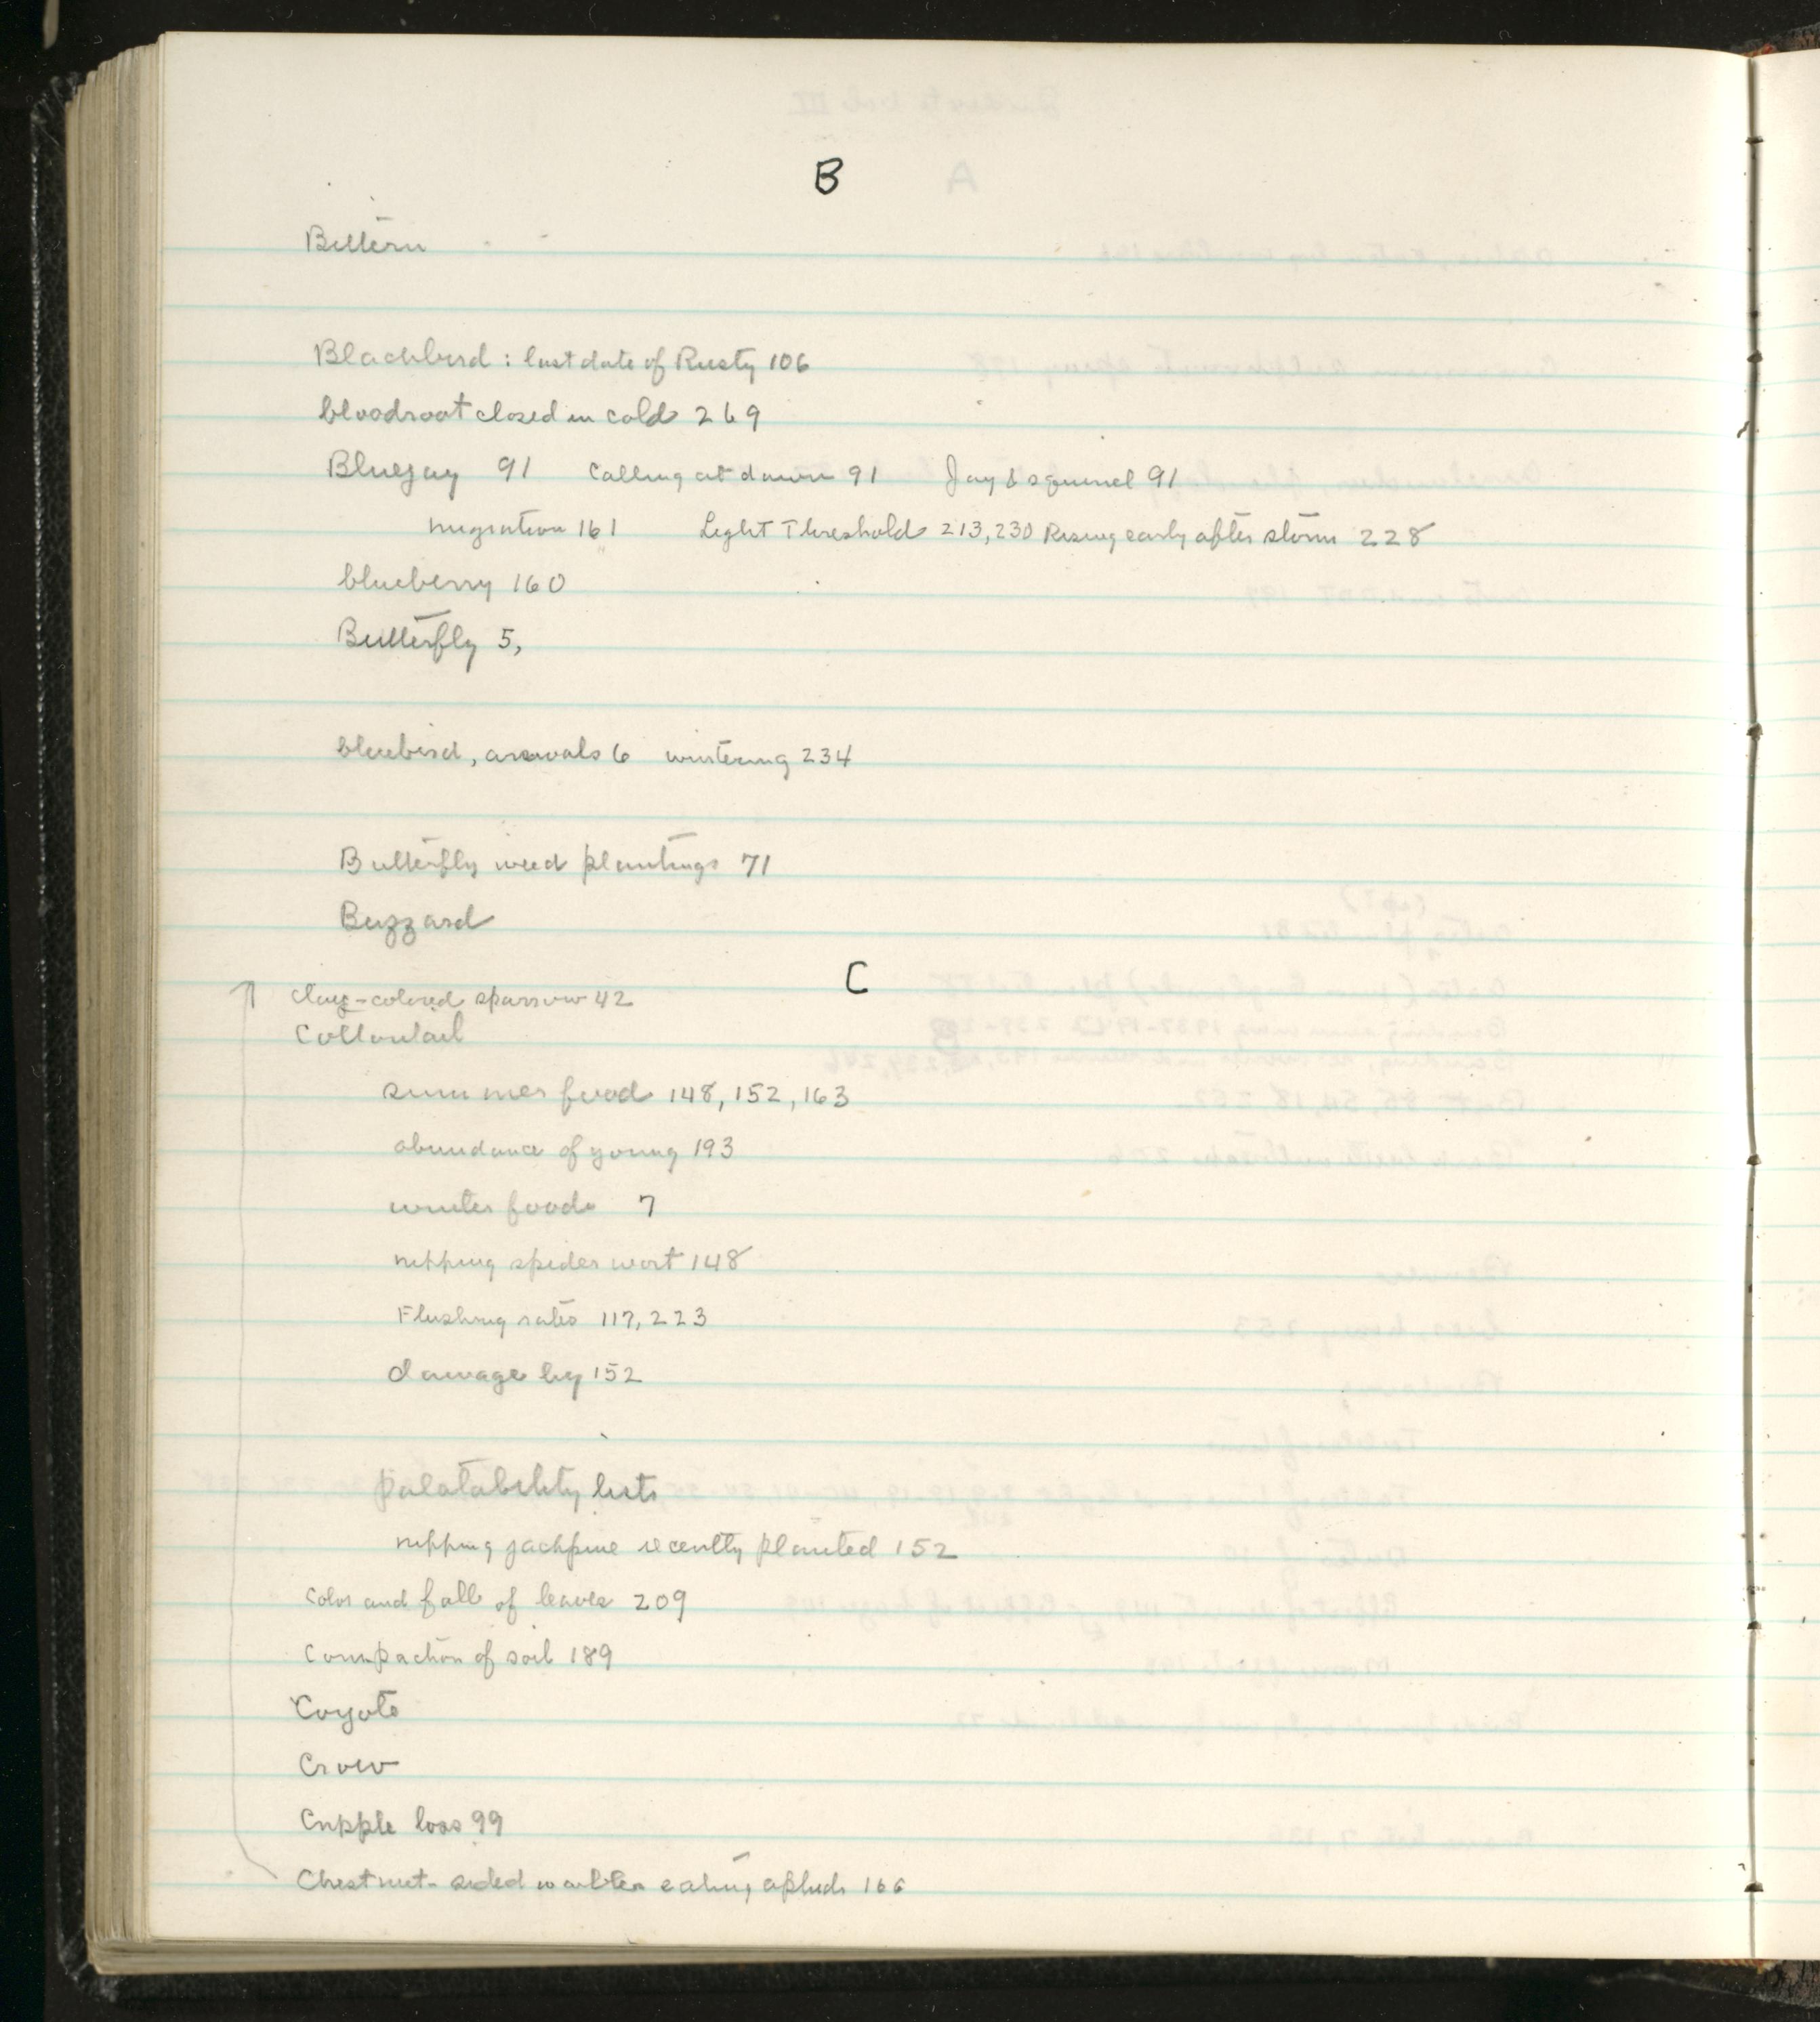 B
Bittern
Blackbird : last date of Rusty 106
bloodroot closed in cold 269
Bluejay 91 Calling at dawn 91 Jay & squirrel 91
migration 161 Light Threshold 213, 230 Rising early after storm 228
blueberry 160
Butterfly 5,
bluebird, arrivals 6 wintering 234
Butterfly weed plantings 71
Buzzard
C
clay-colored sparrow 42
Cottontail
summer food 148, 152, 163
abundance of young 193
winter foods 7
nipping spiderwort 148
Flushing rates 117, 223
damage by 152
palatability lists
nipping jackpine recently planted 152
Color and fall of leaves 209
Compaction of soil 189
Coyote
Crow
Cripple loss 99
Chestnut-sided warbler eating aphids 166